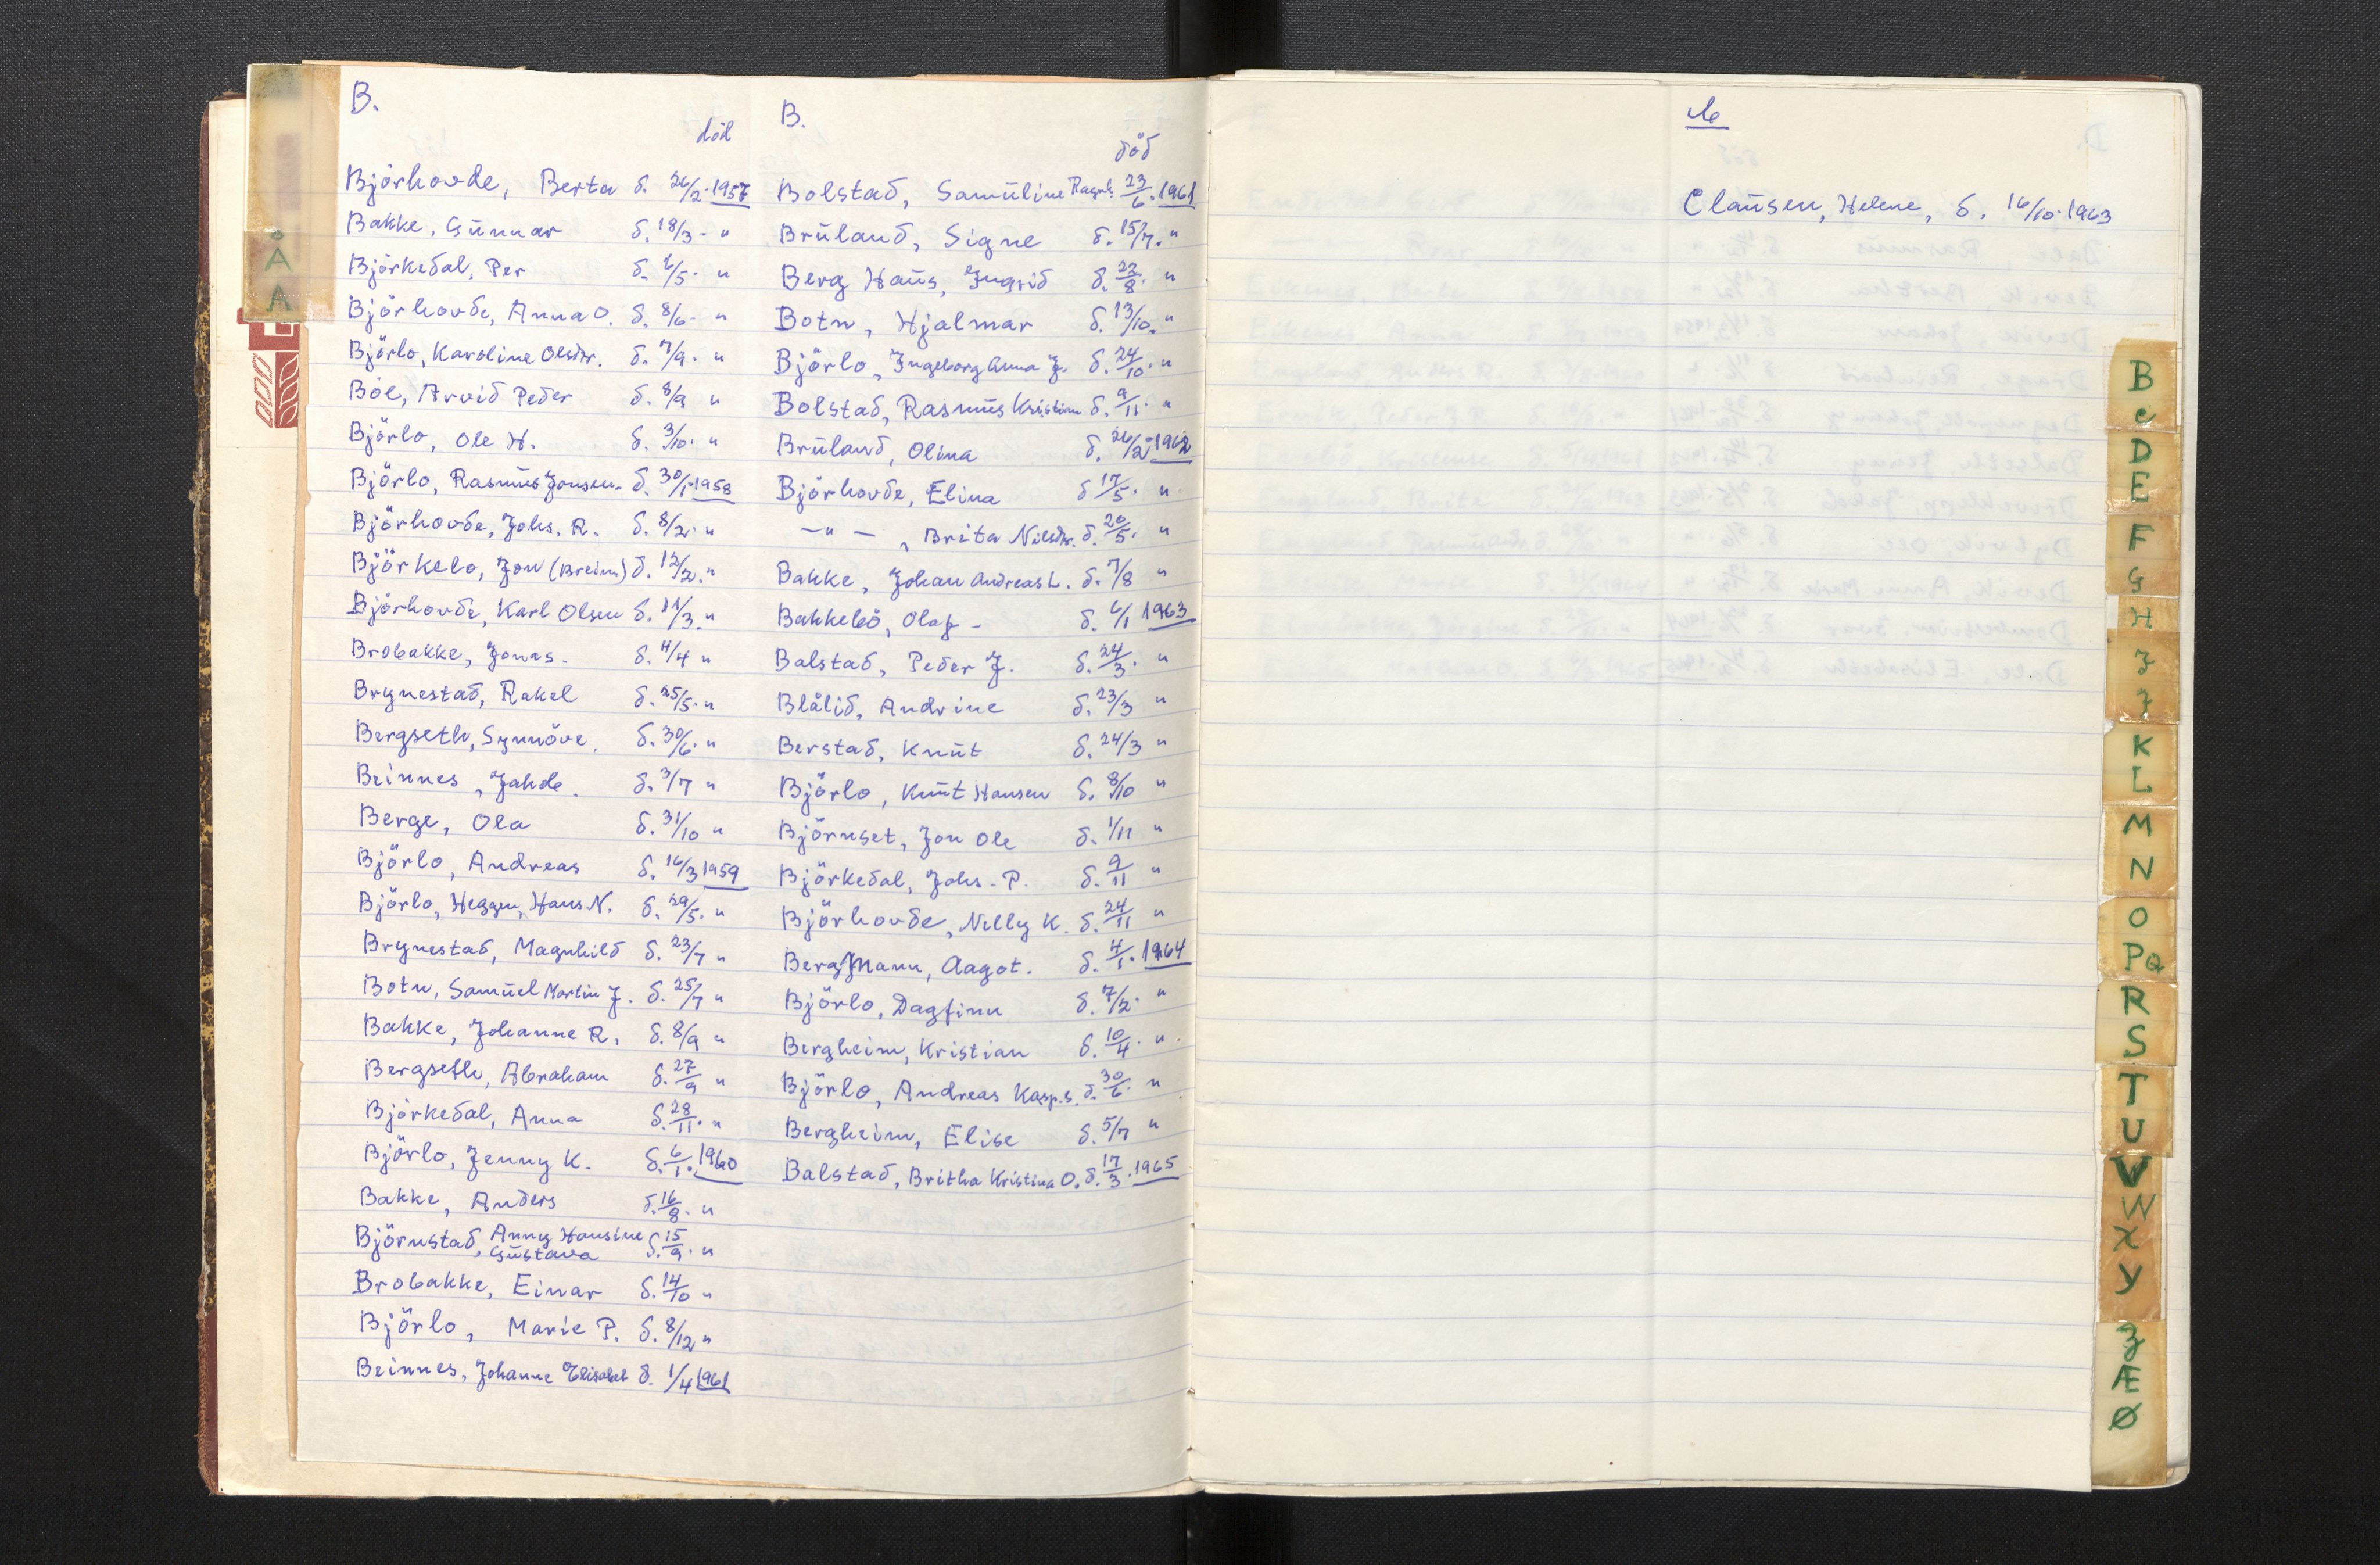 B.
död
Björhovde, Berta d. 26/2. 1957
Bakke, Gunnar d. 18/3. "
Björkedal, Per d. 2/5. "
Björhovde, Anna O. d. 8/6. "
Björlo, Karoline Olsdr. d. 7/9. "
Böe, Arvid Peder d. 8/9 "
Björlo, Ole H. d. 3/10. "
Björlo, Rasmus Jonsen. d. 30/1. 1958
Björhovde, Johs. R. d. 8/2. "
Björkelo, Jon (Breim) d. 12/2. "
Björhovde, Karl Olsen d. 11/3. "
Brobakke, Jonas. d. 4/4 "
Brynestad, Rakel d. 25/5. "
Bergseth, Synnöve. d. 30/6. "
Beinnes, Jahde. d. 3/7 "
Berge, Ola d. 31/10 "
Björlo, Andreas d. 16/3 1959
Björlo, Heggen, Hans N. d. 29/5. "
Brynestad, Magnhild d. 23/7 "
Botn, Samuel Martin J. d. 25/7 "
Bakke, Johanne R. d. 8/9 "
Bergseth, Abraham d. 27/9 "
Björkedal, Anna d. 28/11. "
Björlo, Jenny K. d. 6/1. 1960
Bakke, Anders d. 16/8. "
Björnstad, Anny Hansine
Gustava d. 15/9. "
Brobakke, Einar d. 14/10 "
Björlo, Marie P. d. 8/12 "
Beinnes, Johanne Elisabet d. 1/4 1961
B.
död
Bolstad, Samuline Ragnh. d. 23/6. 1961
Bruland, Signe d. 15/7. "
Berg Haus, Ingrid d. 22/8. "
Botn, Hjalmar d. 13/10. "
Björlo, Ingeborg Anna J. d. 24/10. "
Bolstad, Rasmus Kristian d. 9/11. "
Bruland, Olina d. 26/2. 1962
Björhovde, Elina d. 17/5. "
— " —, Brita Nilsdr. d. 20/5. "
Bakke, Johan Andreas L. d. 7/8 "
Bakkebö, Olaf - d. 6/1 1963
Balstad, Peder J. d. 24/3. "
Blålid, Andrine d. 23/3 "
Berstad, Knut d. 24/3 "
Björlo, Knut Hansen d. 8/10 "
Björnset, Jon Ole d. 1/11 "
Björkedal, Johs. P. d. 9/11 "
Björhovde, Nelly K. d. 24/11 "
Berg Mann, Aagot. d. 4/1. 1964
Björlo, Dagfinn d. 7/2. "
Bergheim, Kristian d. 10/4. "
Björlo, Andreas Kasp.s. d. 30/6. "
Bergheim, Elise d. 5/7 "
Balstad, Britha Kristina O. d. 17/3. 1965
C
Clausen, Helene, d. 16/10. 1963
Å
A
B
C
D
E
F
G
H
I
J
K
L
M
N
O
PQ
R
S
T
U
V
W
X
Y
Z
Æ
Ø